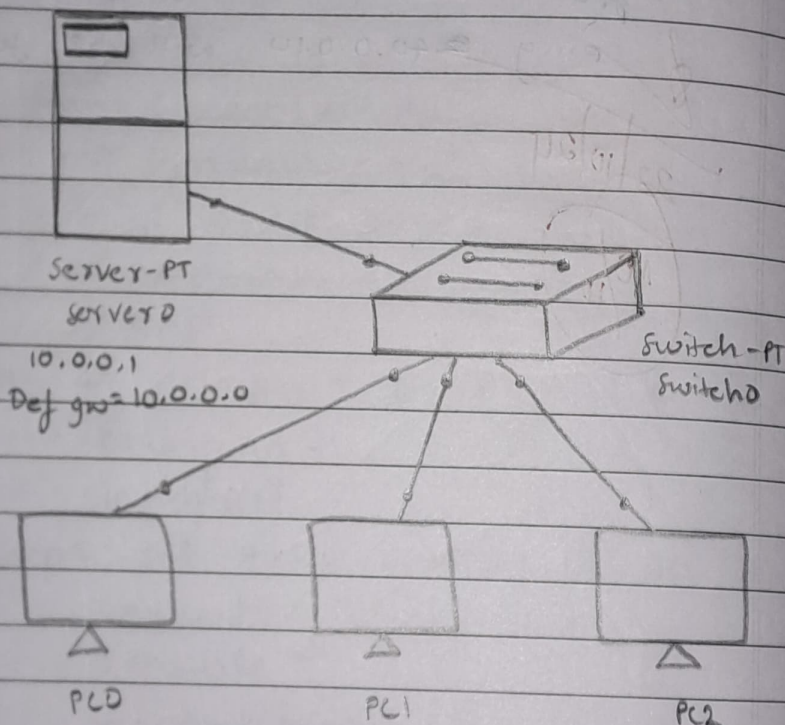 Server-PT
Server0
10.0.0.1
Def gw = 10.0.0.0
Switch-PT
Switch0
PC0
PC1
PC2